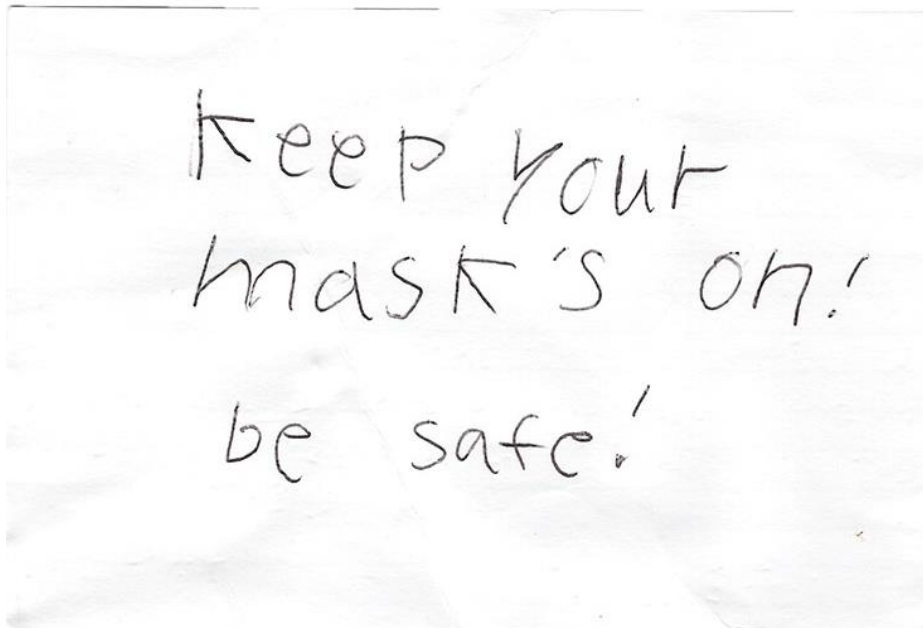 Keep your
mask's on!
be safe!